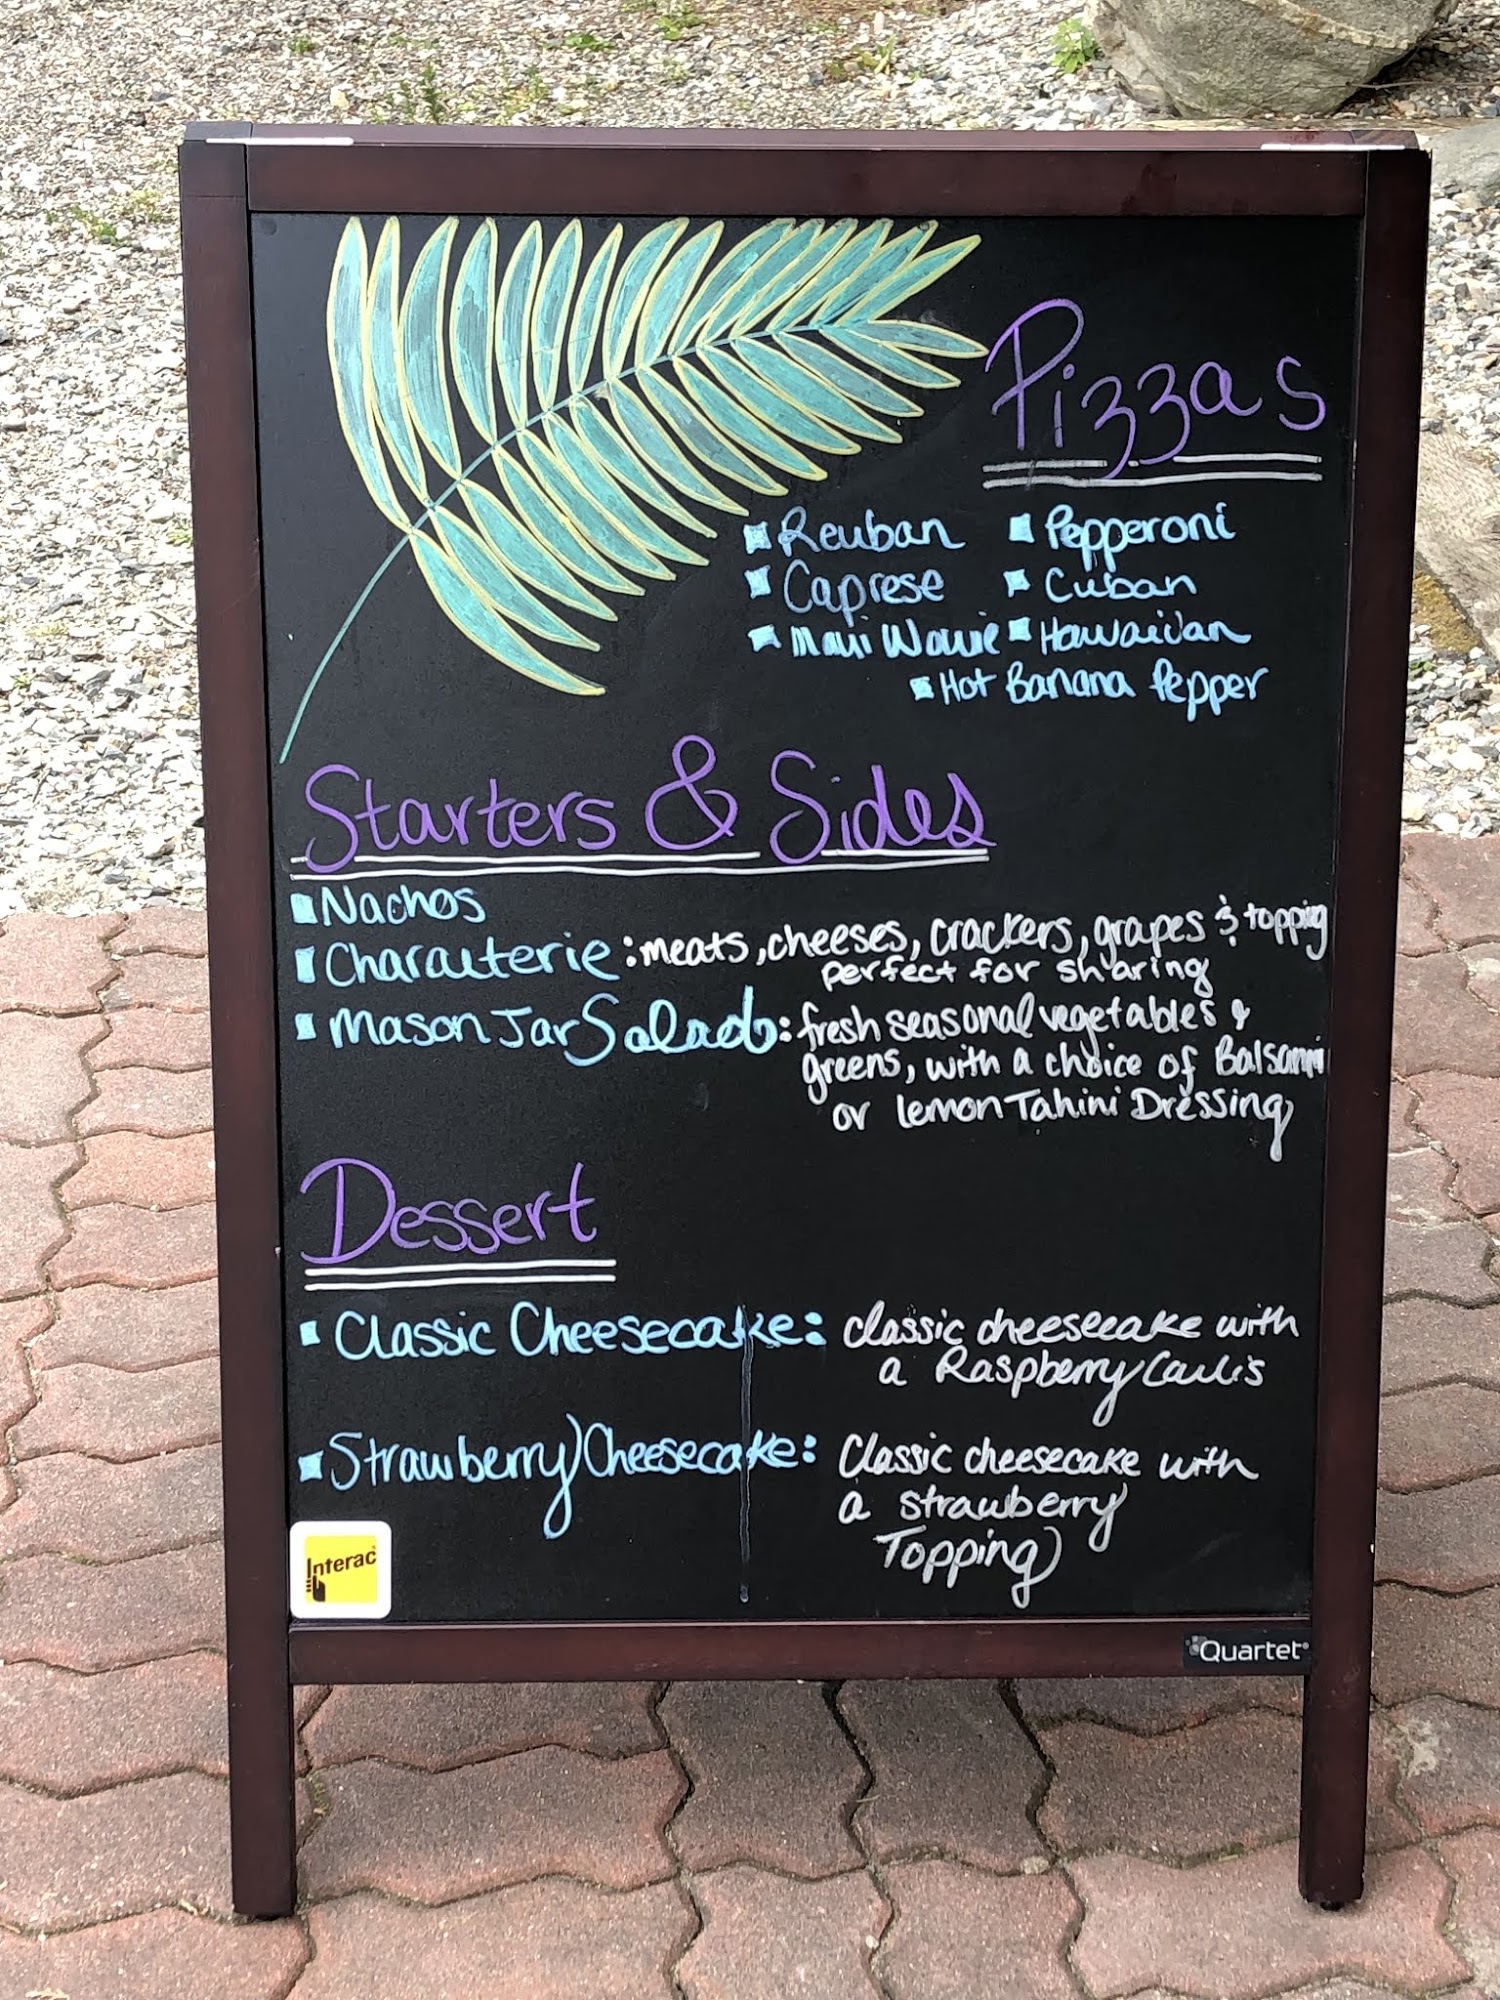 Pizzas
Reuban
Pepperoni
Caprese
Cuban
Maui Wowie
Hawaiian
Hot Banana Pepper
Starters & Sides
Nachos
Characuterie: meats, cheeses, crackers, grapes & topping
perfect for sharing
Mason Jar Salad: fresh seasonal vegetables &
greens, with a choice of Balsamic
or lemon Tahini Dressing
Dessert
Classic Cheesecake: classic cheesecake with
a Raspberry Caulis
Strawberry Cheesecake: Classic cheesecake with
a strawberry
Topping
Interac
Quartet